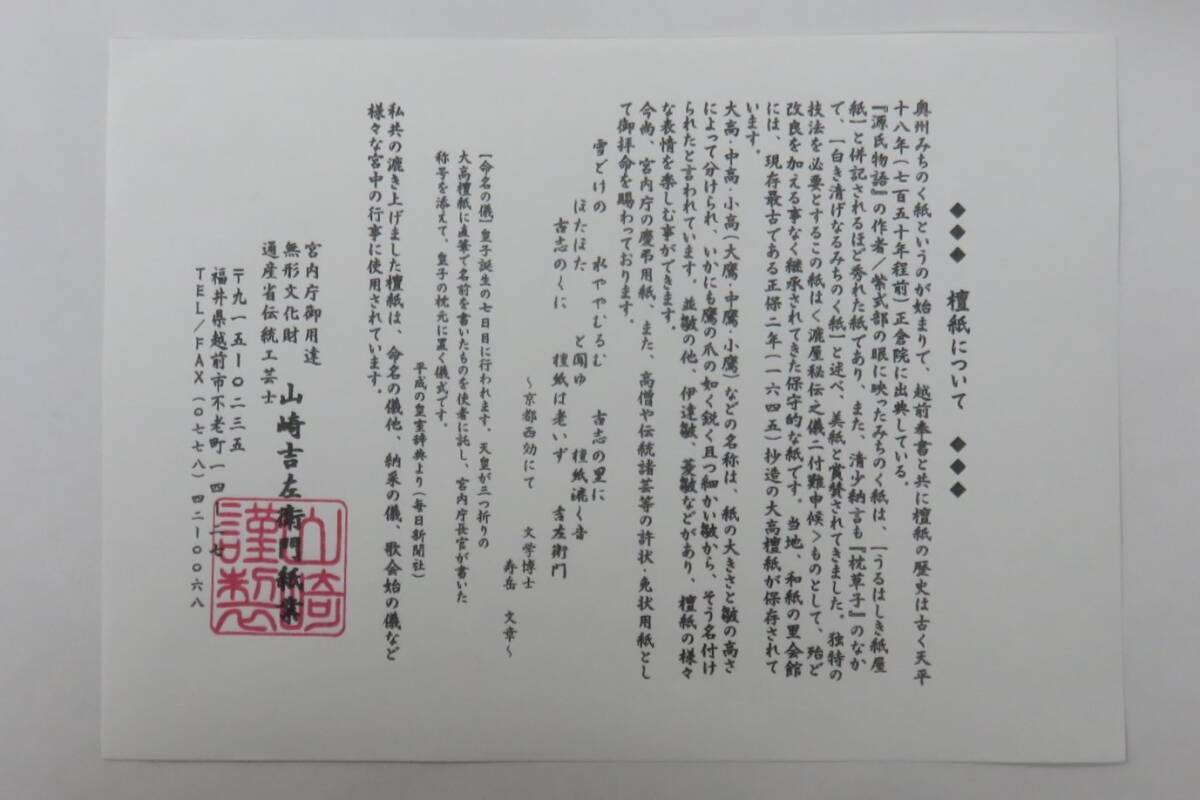 ◆◆◆ 檀紙について ◆◆◆
奥州みちのく紙というのが始まりで、越前奉書と共に檀紙の歴史は古く天平
十八年(七百五十年程前)正倉院に出典している。
『源氏物語』の作者/紫式部の眼に映ったみちのく紙は、「うるはしき紙屋
紙」と併記されるほど秀れた紙であり、また、清少納言も『枕草子』のなか
で、「白き清げなるみちのく紙」と述べ、美紙と賞賛されてきました。独特の
技法を必要とするこの紙は<漉屋秘伝之儀ニ付難申候>ものとして、殆ど
改良を加える事なく継承されてきた保守的な紙です。当地、和紙の里会館
には、現存最古である正保二年(一六四五)抄造の大高檀紙が保存されて
います。
大高・中高・小高(大鷹・中鷹・小鷹)などの名称は、紙の大きさと皺の高さ
によって分けられ、いかにも鷹の爪の如く鋭く且つ細かい皺から、そう名付け
られたと言われています。並皺の他、伊達皺、菱皺などがあり、檀紙の様々
な表情を楽しむ事ができます。
今尚、宮内庁の慶弔用紙、また、高僧や伝統諸芸等の許状・免状用紙とし
て御拝命を賜わっております。
雪どけの 水ややむるむ 古志の里に
ほたほた と聞ゆ 檀紙漉く音
古志のくに 檀紙は老いず 吉左衛門
~京都西効にて 文学博士
寿岳 文章~
【命名の儀】皇子誕生の七日目に行われます。天皇が三つ折りの
大高檀紙に直筆で名前を書いたものを使者に託し、宮内庁長官が書いた
称号を添えて、皇子の枕元に置く儀式です。
平成の皇室辞典より(毎日新聞社)
私共の漉き上げました檀紙は、命名の儀他、納采の儀、歌会始の儀など
様々な宮中の行事に使用されています。
宮内庁御用達
無形文化財
通産省伝統工芸士
山崎吉左衛門紙業
〒915-0235
福井県越前市不老町14-27
TEL/FAX(0778)42-0068
山崎
謹製